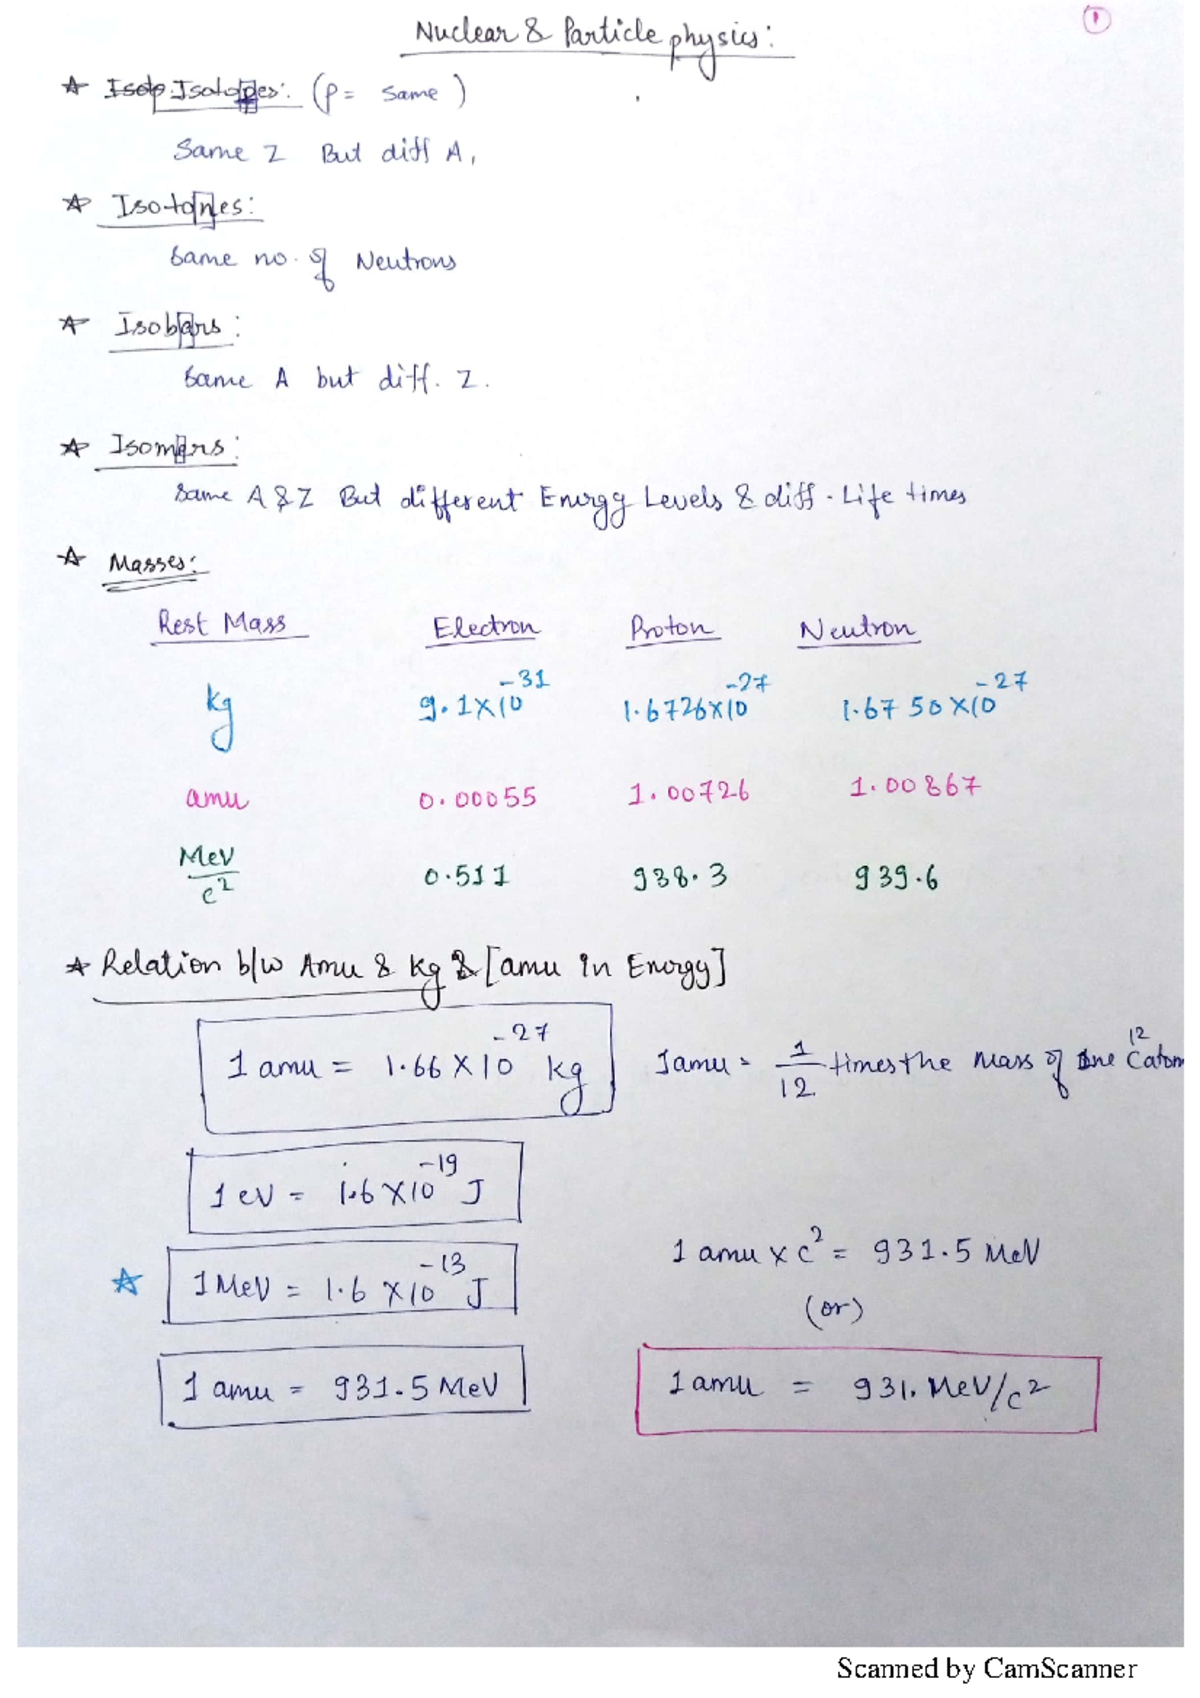 Nuclear & Particle physics:
1
☆ Isotopes: (p = same)
Same Z But diff A,
☆ Isotones:
Same no. of Neutrons
☆ Isobars:
Same A but diff. Z.
☆ Isomers:
Same A & Z But different Energy Levels & diff. Life times
☆ Masses:
Rest Mass Electron Proton Neutron
kg 9.1×10⁻³¹ 1.6726×10⁻²⁷ 1.6750×10⁻²⁷
amu 0.00055 1.00726 1.00867
MeV/c² 0.511 938.3 939.6
☆ Relation b/w Amu & Kg & [amu in Energy]
1 amu = 1.66×10⁻²⁷ kg 1amu = 1/12 times the mass of one C¹² atom
1 eV = 1.6×10⁻¹⁹ J
☆ 1 MeV = 1.6×10⁻¹³ J 1 amu × c² = 931.5 MeV
(or)
1 amu = 931.5 MeV 1 amu = 931. MeV/c²
Scanned by CamScanner